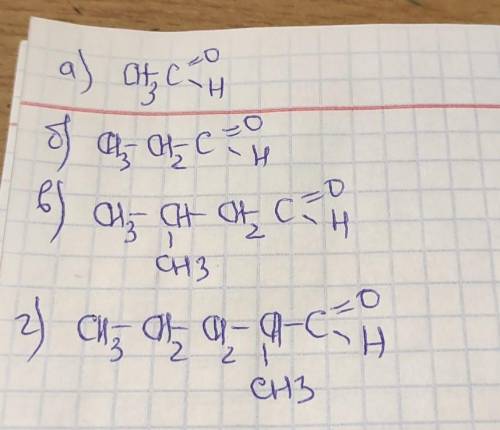 а) CH3 C =O
- H
б) CH3- CH2- C =O
- H
в) CH3- CH- CH2- C =O
- H
CH3
г) CH3- CH2- CH2- CH- C =O
- H
CH3